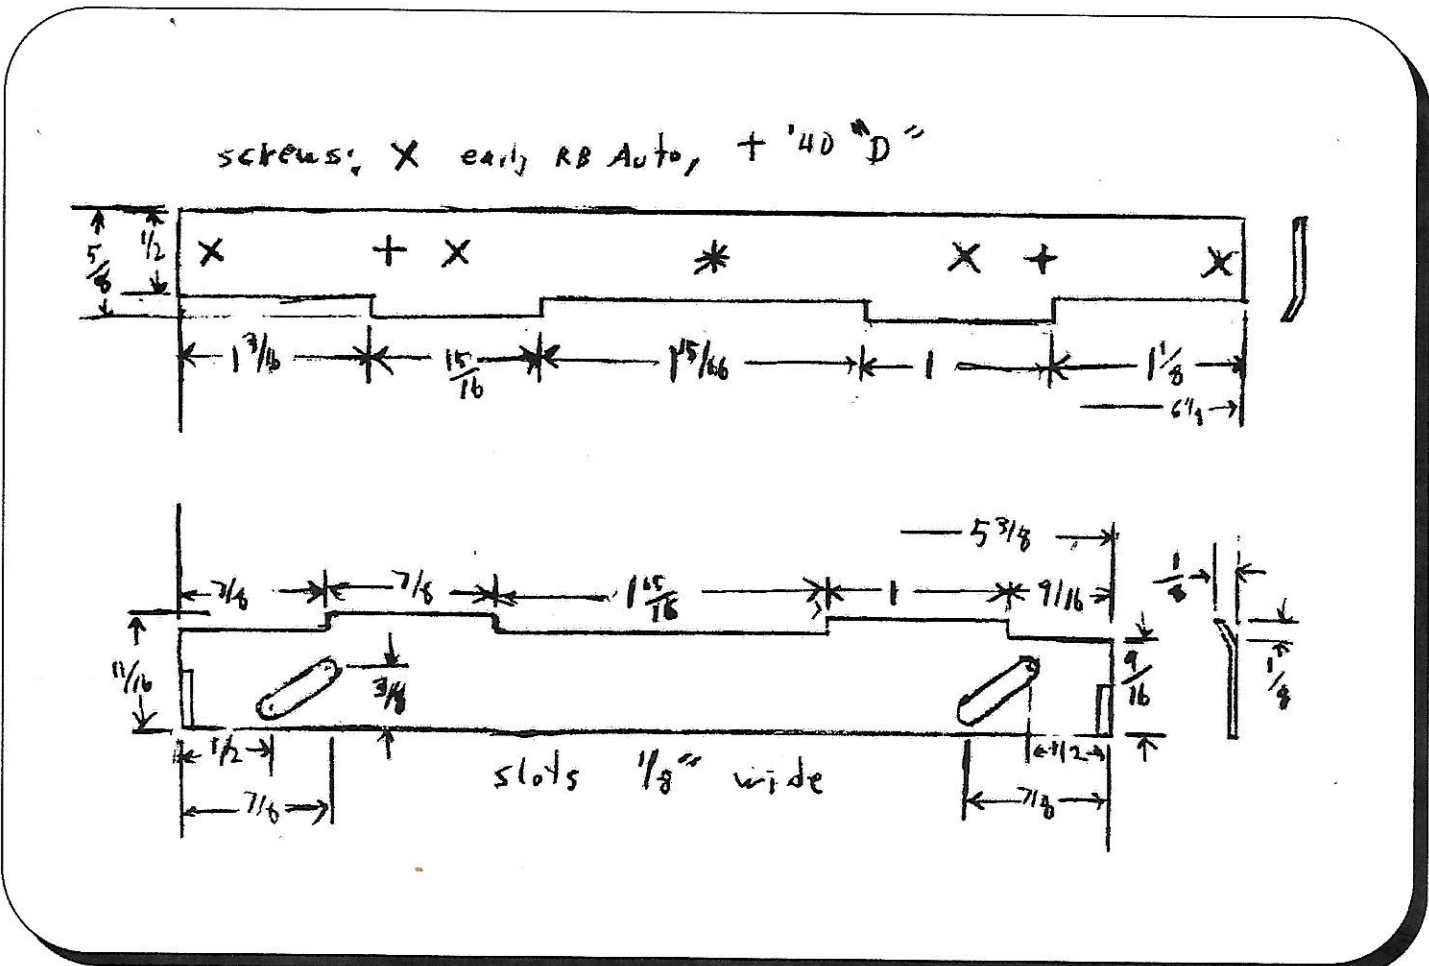 screws: X early RB Auto, + '40 "D"
5/8 1/2
1 3/16 15/16 1 15/16 1 1 1/8
5 3/8
7/8 7/8 1 15/16 1 9/16 1/8
11/16 3/8 9/16 1/8
1/2 slots 1/8" wide 1/2
7/8 7/8